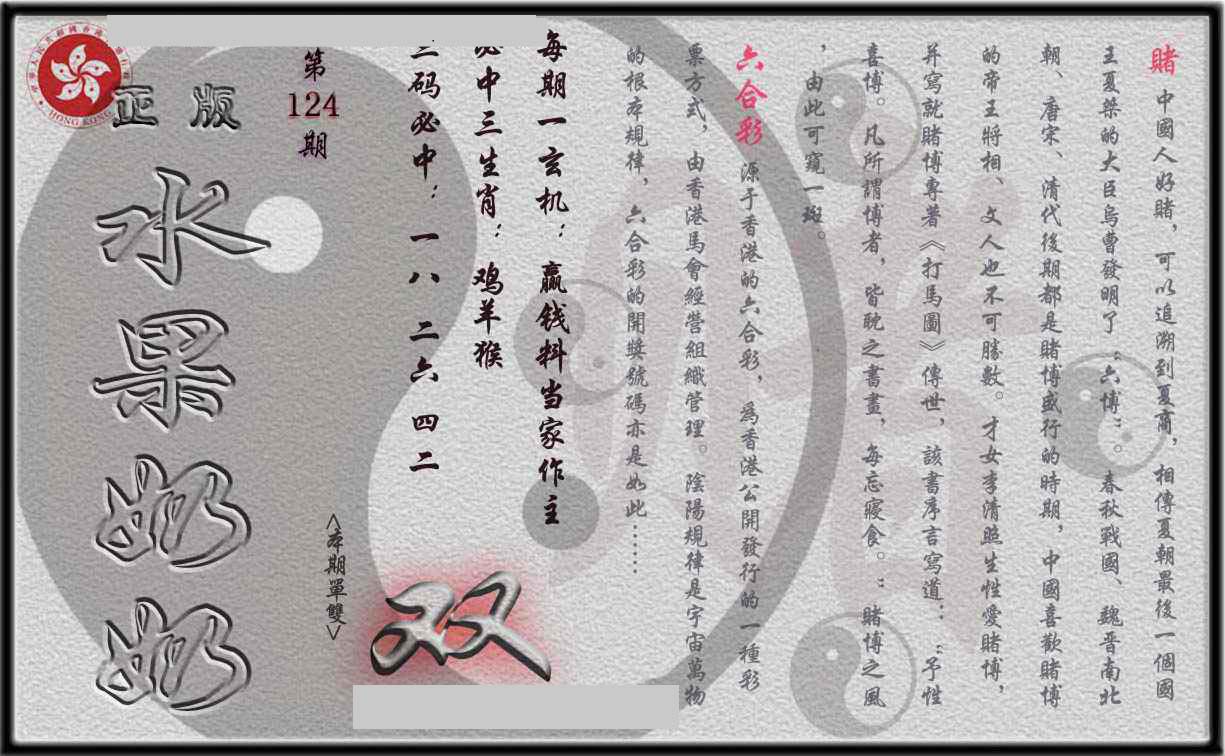 賭 中國人好賭，可以追溯到夏商，相傳夏朝最後一個國
王夏桀的大臣烏曹發明了“六博”。春秋戰國、魏晋南北
朝、唐宋、清代後期都是賭博盛行的時期，中國喜歡賭博
的帝王將相、文人也不可勝數。才女李清照生性愛賭博，
并寫就賭博專著《打馬圖》傳世，該書序言寫道：“予性
喜博。凡所謂博者，皆耽之書畫，每忘寢食。”賭博之風
，由此可窺一斑。
六合彩 源于香港的六合彩，為香港公開發行的一種彩
票方式，由香港馬會經營組織管理。陰陽規律是宇宙萬物
的根本規律，六合彩的開獎號碼亦是如此……
每期一玄机：赢钱料当家作主
必中三生肖：鸡羊猴
三码必中：一八 二六 四二
双
<本期單雙>
第
124
期
正版
水果奶奶
HONG KONG